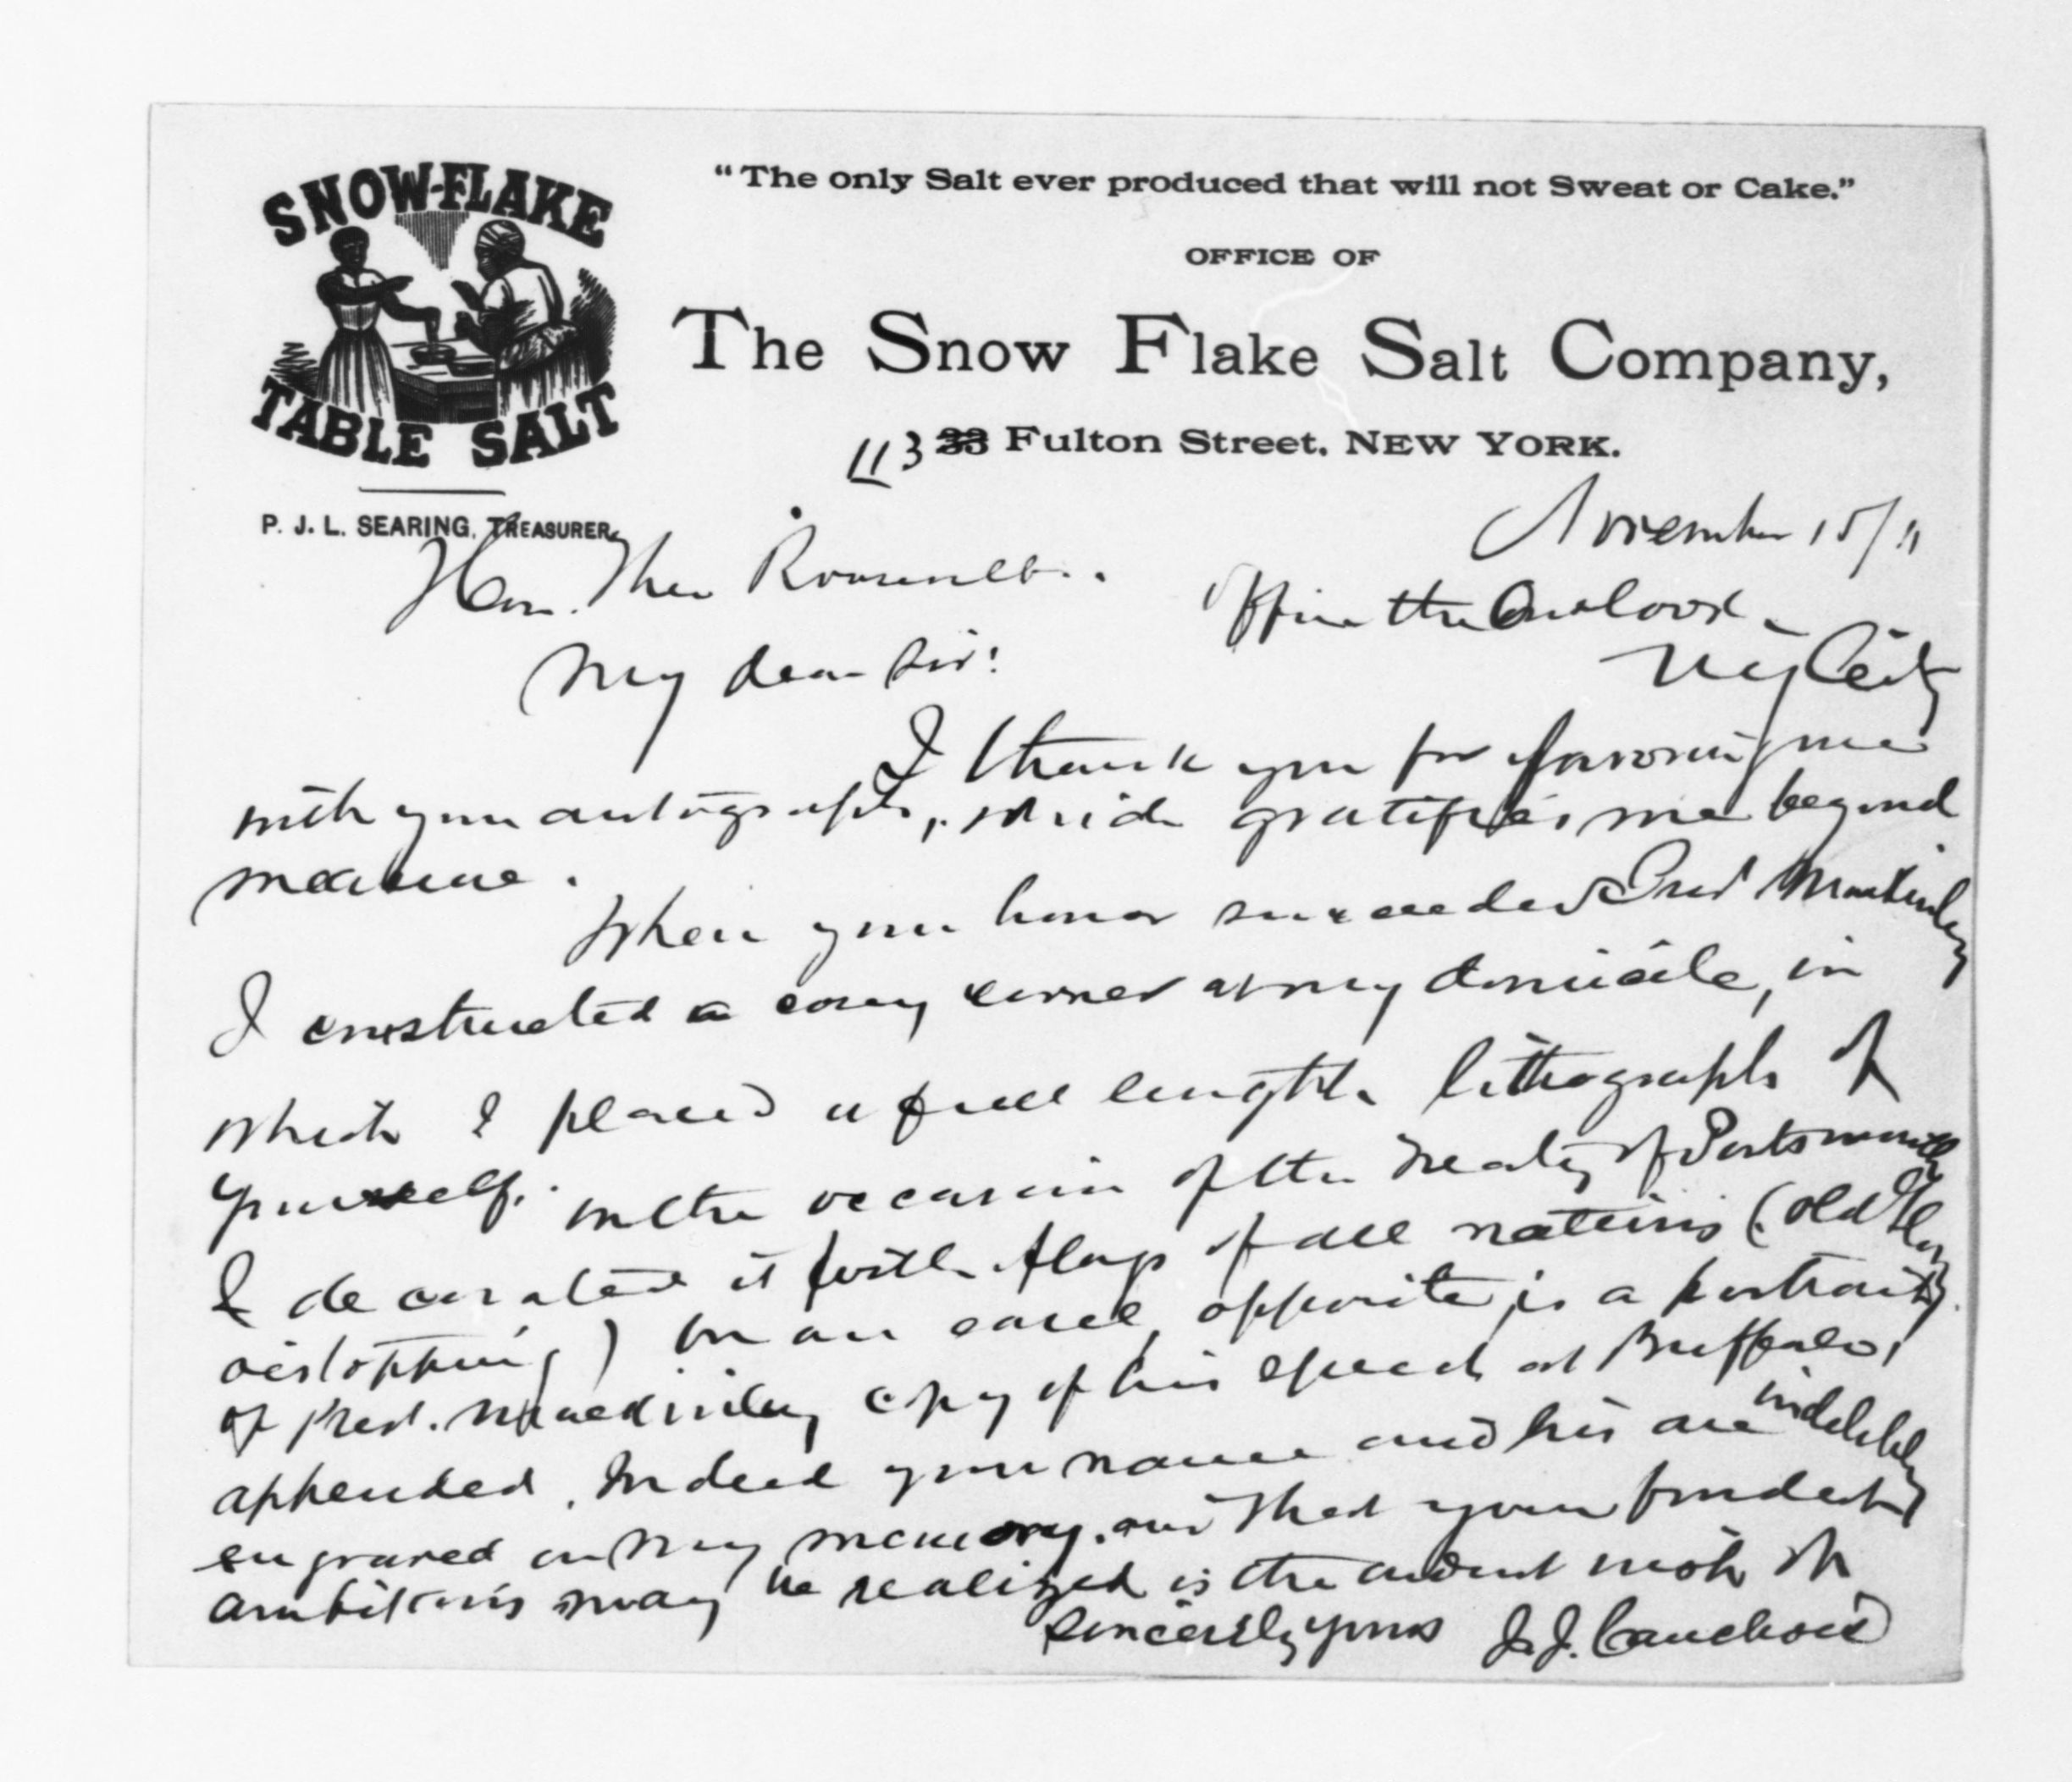 SNOW-FLAKE
TABLE SALT
P. J. L. SEARING, TREASURER.
"The only Salt ever produced that will not Sweat or Cake."
OFFICE OF
The Snow Flake Salt Company,
113 33 Fulton Street, NEW YORK.
November 15/11
Hon. Theo Roosevelt.
Office the Outlook
NY City
My dear Sir:
I thank you for favoring me
with your autograph, which gratifies me beyond
measure.
When your honor succeeded Pres' MacKinley
I constructed a cosey corner at my domicile, in
which I placed a full length lithograph of
yourself. on the occasion of the Treaty of Portsmouth
I decorated it with flags of all nations (old Glory
o'ertopping) on an easel, opposite, is a portrait
of Pres. MacKinley copy of his speech at Buffalo,
appended. Indeed your name and his are indelibly
engraved on my memory. and that your fondest
ambitions may be realized is the ardent wish of
Sincerely yours J. J. Cauchois